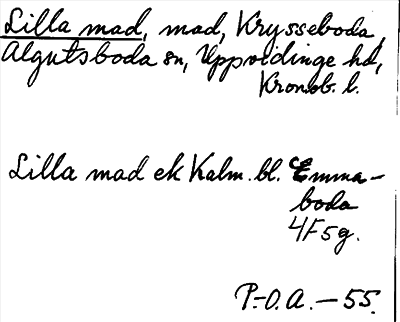 Lilla mad, mad, Krysseboda,
Algutsboda sn, Uppvidinge hd,
Kronob. l.
Lilla mad ek Kalm. bl. Emma-
boda
4F5g.
P.-O.A. - 55.